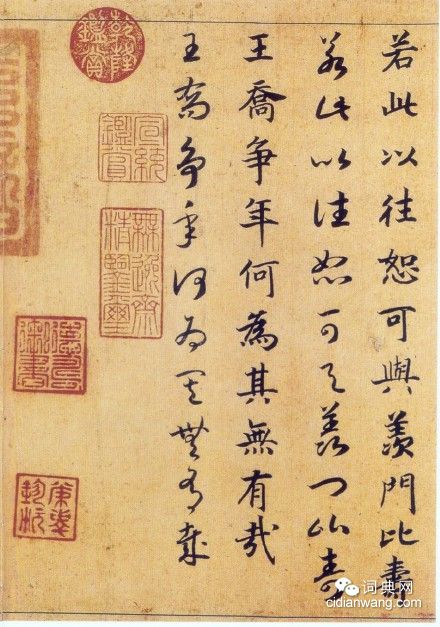 若此以往恕可與羨門比壽
若此以往恕可與羨門比壽
王喬争年何為其無有哉
王喬争年何為其無有哉
乾隆鑑賞
宣統鑑賞
無逸齋精鑒璽
词典网
cidianwang.com